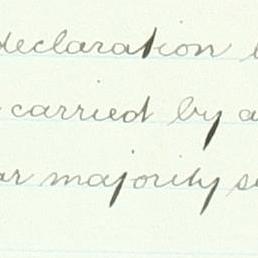 declaration
carried by a
ar majority s